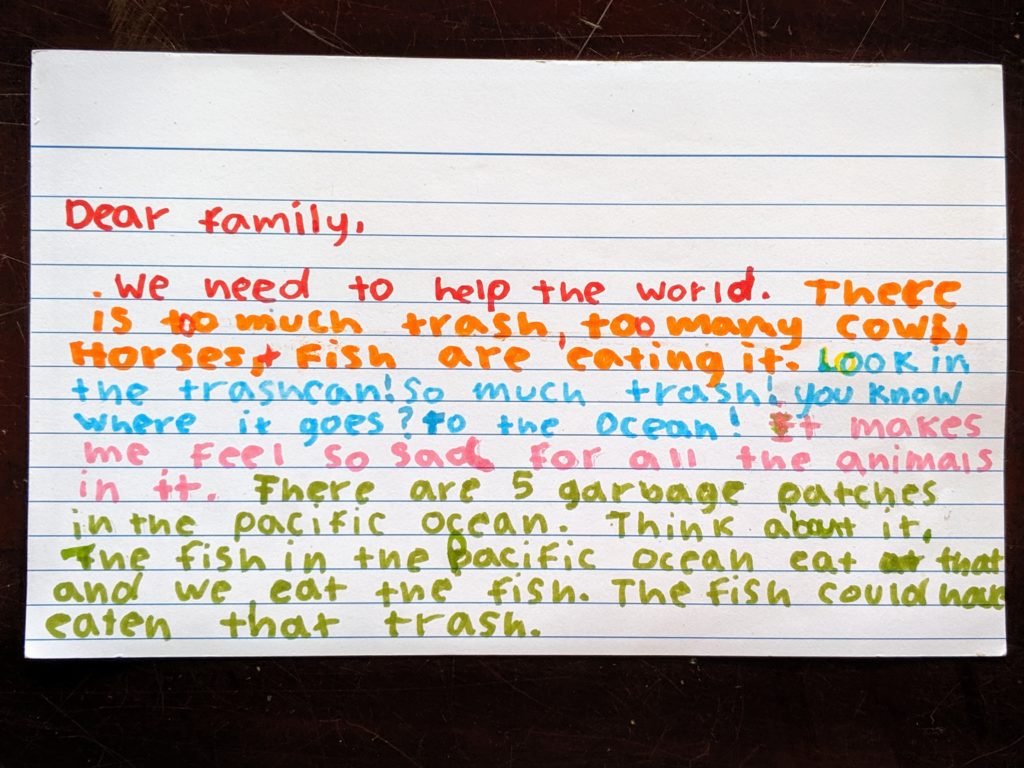 Dear family,
We need to help the world. There
is too much trash, too many cows,
Horses, + Fish are eating it. Look in
the trashcan! So much trash! you know
where it goes? To the ocean! It makes
me feel so sad for all the animals
in it. There are 5 garbage patches
in the pacific ocean. Think about it,
The fish in the pacific ocean eat that
and we eat the fish. The fish could have
eaten that trash.